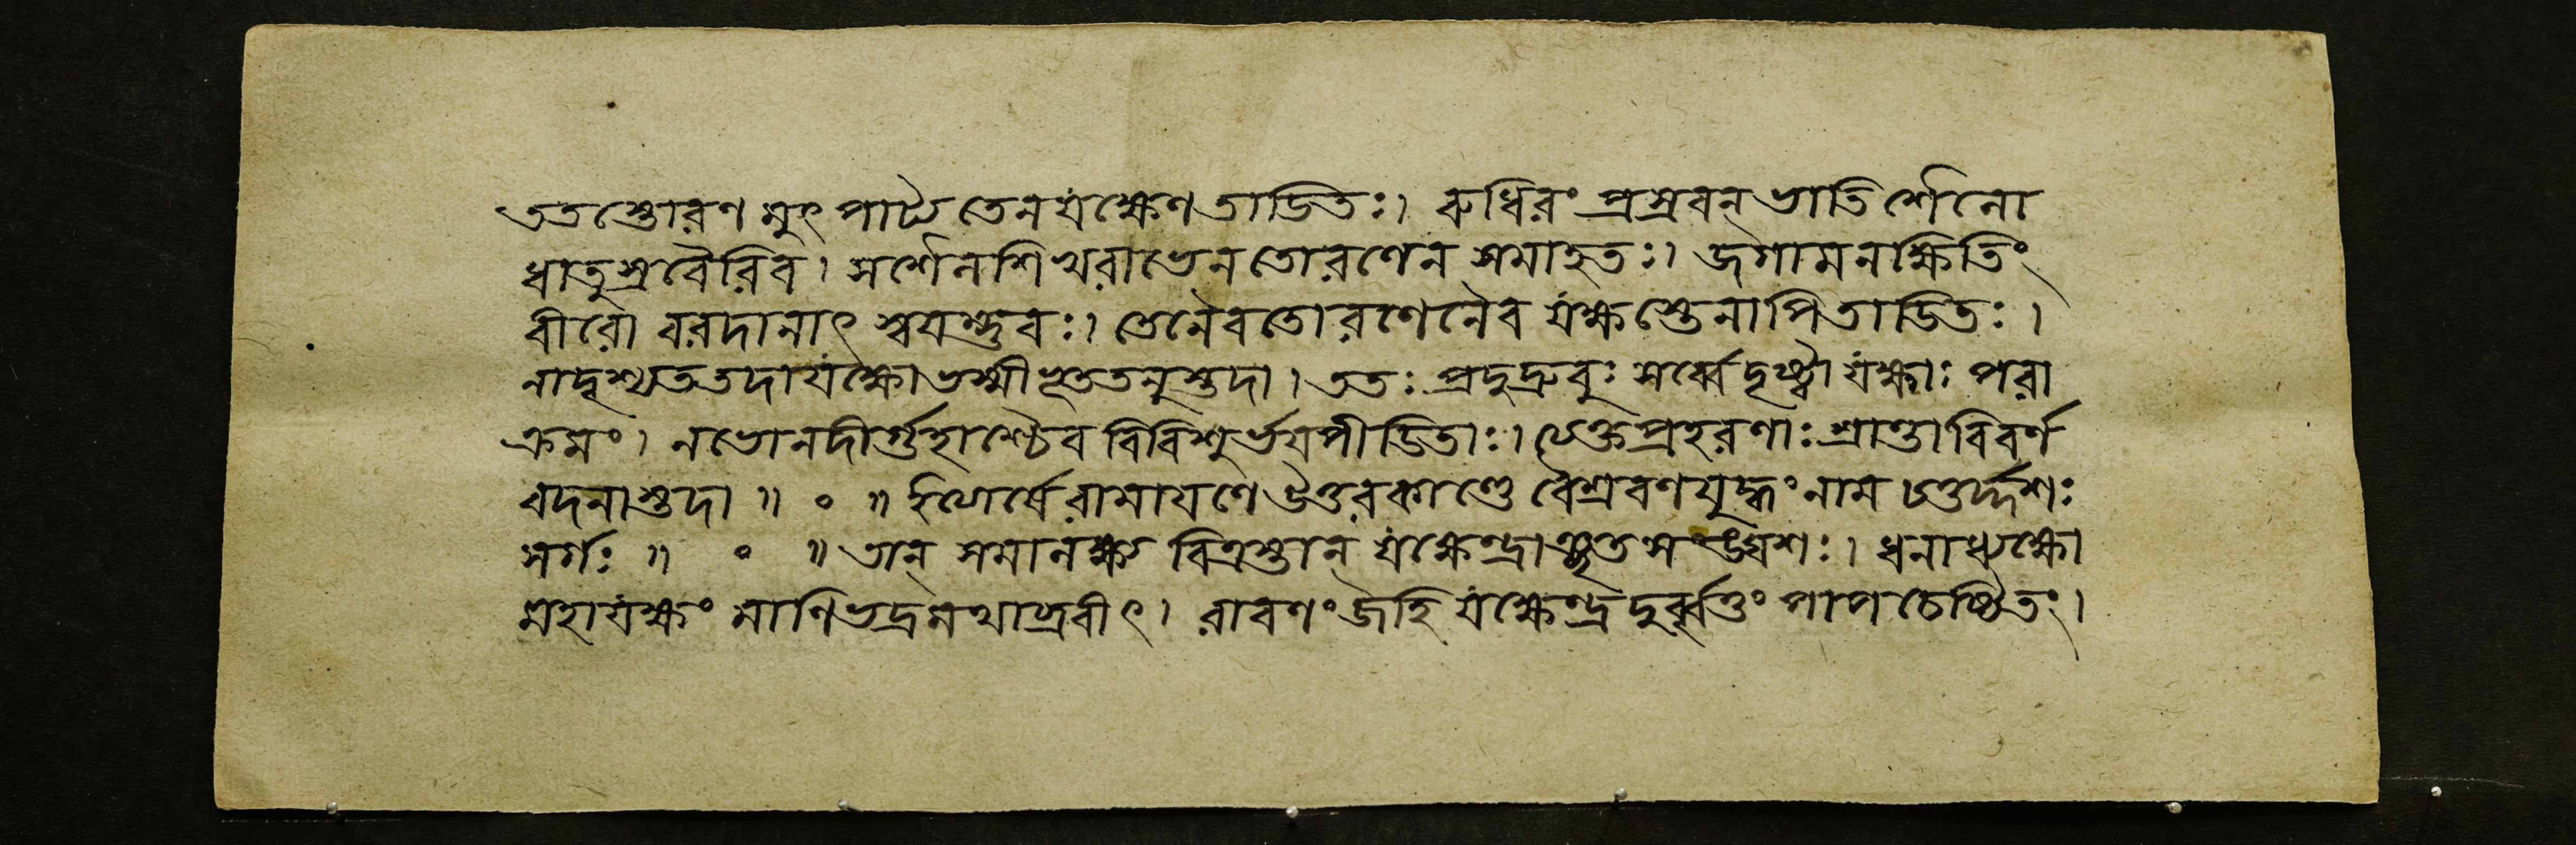 ততস্তোরণ মুৎপাট্য তেন যক্ষেণ তাডিতঃ। রুধিরং প্রস্রবন্ ভাতি শৈলো
ধাতুস্রবৈরিব। স শৈলশিখরাভেন তোরণেন সমাহতঃ। জগাম ন ক্ষিতিং
বীরো বরদানাৎ স্বযম্ভুবঃ। তেনৈব তোরণেনৈব যক্ষস্তেনাপি তাডিতঃ।
নাদৃশ্যত তদা যক্ষো ভস্মীভূততনুস্তদা। ততঃ প্রদুদ্রুবুঃ সর্ব্বে দৃষ্ট্বা যক্ষাঃ পরা
ক্রমং। নভো নদীর্গুহাশ্চৈব বিবিশুর্ভযপীডিতাঃ। ত্যক্তপ্রহরণাঃ শ্রান্তা বিবর্ণ
বদনাস্তদা॥ ० ॥ ইত্যার্ষে রামাযণে উত্তরকাণ্ডে বৈশ্রবণযুদ্ধং নাম চতুর্দ্দশঃ
সর্গঃ॥ ० ॥ তান্ সমালক্ষ্য বিত্রস্তান্ যক্ষেন্দ্রাঞ্ছতসংঘশঃ। ধনাধ্যক্ষো
মহাযক্ষং মাণিভদ্রমথাব্রবীৎ। রাবণং জহি যক্ষেন্দ্র দুর্ব্বৃত্তং পাপচেষ্টিতং।